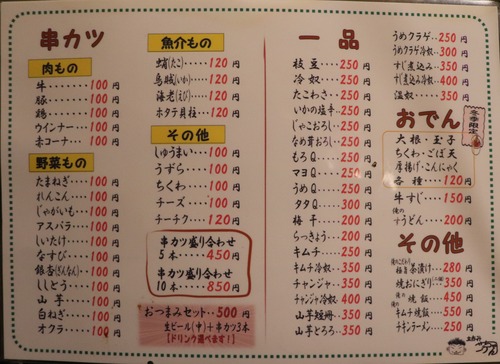 串カツ
肉もの
牛・・・・・・・100円
豚・・・・・・・100円
鶏・・・・・・・100円
ウインナー・・100円
赤コーナー・・100円
野菜もの
たまねぎ・・・100円
れんこん・・・100円
じゃがいも・・100円
アスパラ・・・100円
しいたけ・・・100円
なすび・・・・100円
銀杏(ぎんなん)・・100円
ししとう・・・100円
山芋・・・・・100円
白ねぎ・・・・100円
オクラ・・・・100円
魚介もの
蛸(たこ)・・・120円
烏賊(いか)・・・120円
海老(えび)・・・120円
ホタテ貝柱・・120円
その他
しゅうまい・・100円
うずら・・・・100円
ちくわ・・・・100円
チーズ・・・・100円
チーチク・・・120円
串カツ盛り合わせ
5本・・・・450円
串カツ盛り合わせ
10本・・・・850円
おつまみセット・・500円
生ビール(中)+串カツ3本
【ドリンク選べます!】
一品
枝豆・・・・250円
冷奴・・・・250円
たこわさ・・・250円
いかの塩辛・・250円
じゃこおろし・・250円
なめ茸おろし・・250円
もろQ・・・・250円
マヨQ・・・・250円
うめQ・・・・250円
タタQ・・・・300円
梅干・・・・200円
らっきょう・・200円
キムチ・・・・250円
キムチ冷奴・・350円
チャンジャ・・350円
チャンジャ冷奴 400円
山芋短冊・・・350円
山芋とろろ・・350円
うめクラゲ・・250円
うめクラゲ冷奴 300円
すじ煮込み・・350円
すじ煮込み冷奴 400円
温奴・・・・350円
おでん
冬季限定
大根・玉子
ちくわ・ごぼ天
厚揚げ・こんにゃく
各種・・・120円
牛すじ・・・150円
俺のうどん・・200円
その他
茶漬け・・・280円
焼おにぎり 350円
俺の焼飯・・450円
キムチ焼飯・・550円
チキンラーメン・・250円